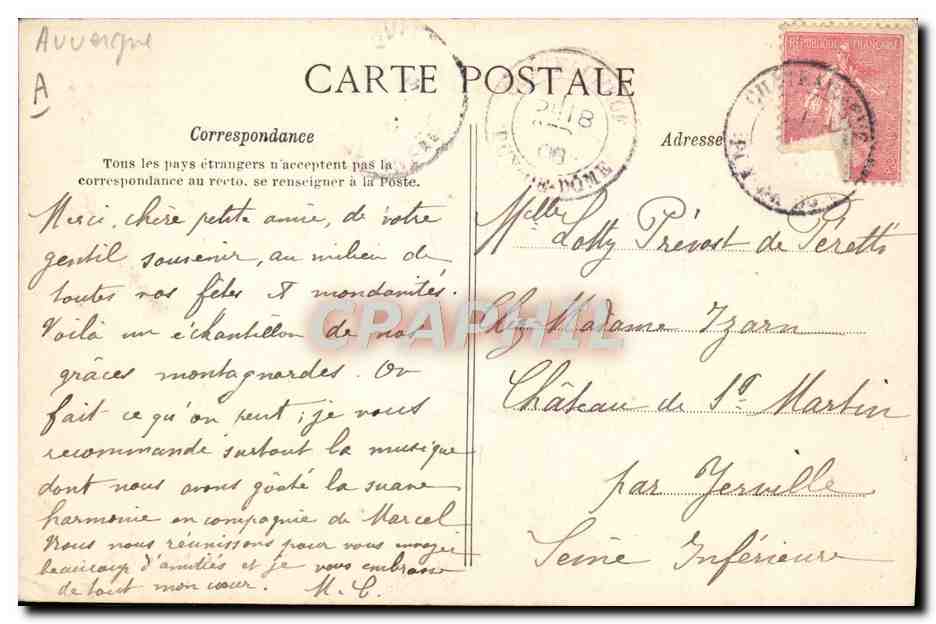 Auvergne
A
CARTE POSTALE
Correspondance
Tous les pays étrangers n'acceptent pas la
correspondance au recto. se renseigner à la Poste.
Merci, chère petite amie, de votre
gentil souvenir, au milieu de
toutes vos fêtes et mondanités.
Voilà un échantillon de nos
grâces montagnardes. On
fait ce qu'on peut; je vous
recommande surtout la musique
dont nous avons goûté la suave
harmonie en compagnie de Marcel
Nous nous réunissons pour vous envoyer
beaucoup d'amitiés et je vous embrasse
de tout mon cœur. M. C.
Adresse
RÉPUBLIQUE FRANÇAISE
18
08
PUY-DE-DOME
Melle Lotty Prévost de Peretti
Chez Madame Izarn
Château de St Martin
par Yerville
Seine Inférieure
CPAPHIL